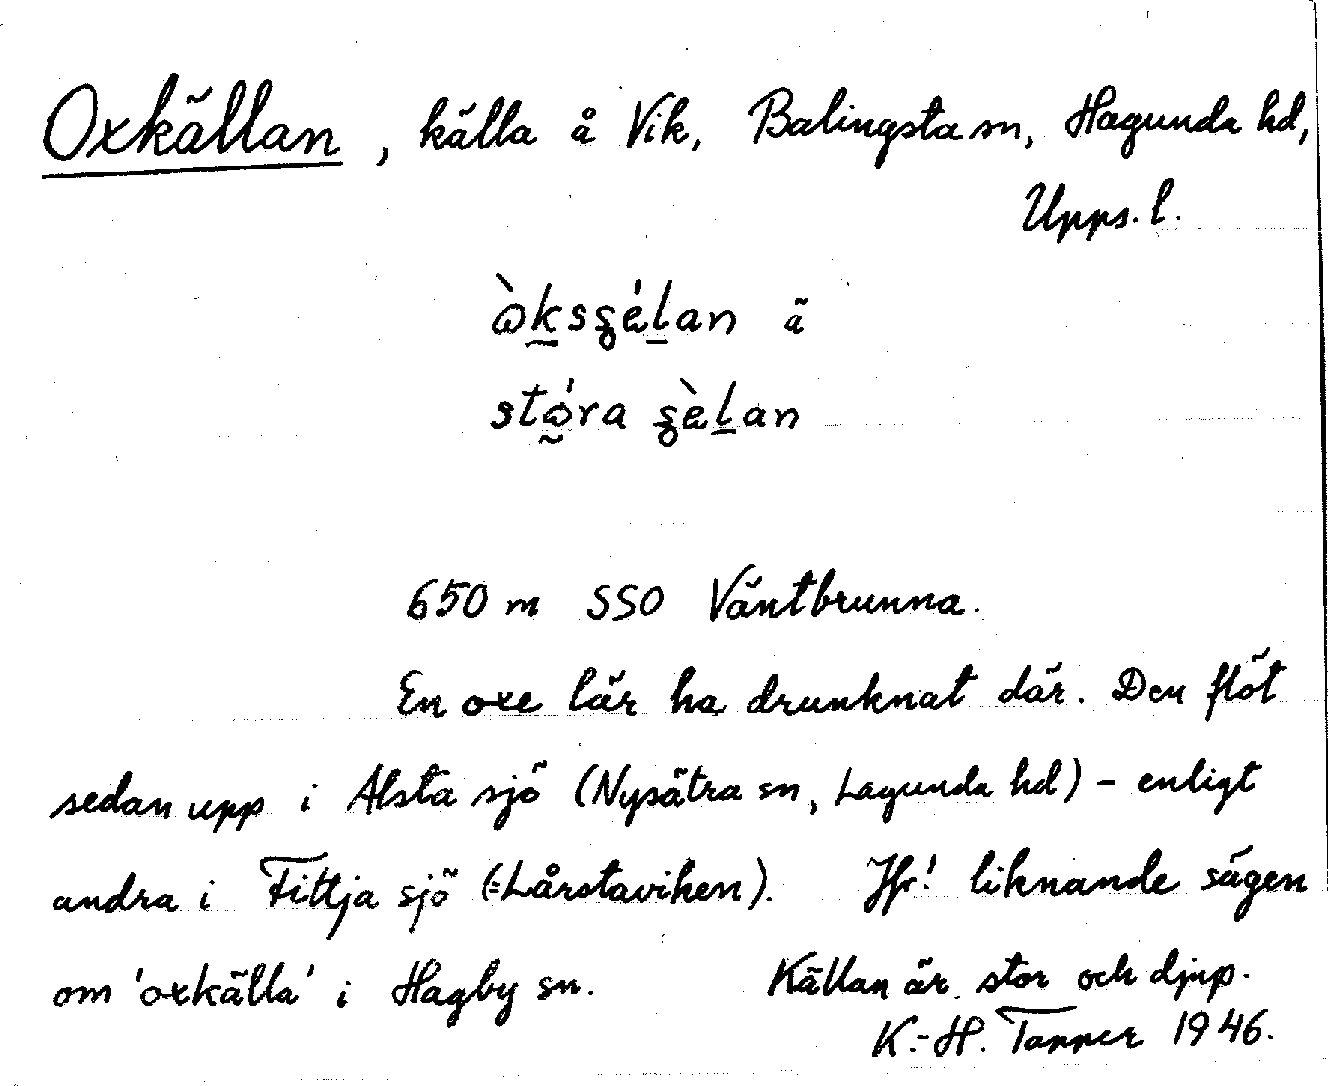 Oxkällan, källa å Vik, Balingsta sn, Hagunda hd,
Upps. l.
650 m SSO Väntbrunna.
En oxe lär ha drunknat där. Den flöt
sedan upp i Alsta sjö (Nysätra sn, Lagunda hd) - enligt
andra i Fittja sjö (=Lårstaviken). Jfr! liknande sägen
om 'oxkälla' i Hagby sn. Källan är stor och djup.
K.-H. Tapper 1946.